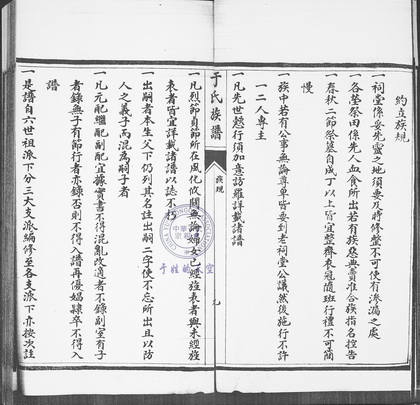 約立族規
一祠堂係妥先靈之地須要及時修整不可使有滲漏之處
一各塋祭田係先人血食所出若有族惡典賣准合族指名控告
一春秋二節祭墓自成丁以上皆宜整齊衣冠隨班行禮不可簡
慢
一族中若有公事無論尊卑皆要到老祠堂公議然後施行不許
一二人專主
一凡先世懿行須加意訪羅詳載諸譜
于氏族譜
族規
九
一凡烈節貞節所在風化攸關無論婦女已經旌表者與未經旌
表者皆宜詳載諸譜以誌不朽
一出嗣者本生父下仍列其名註出嗣二字使不忘所出且以防
人之義子而混為嗣子者
一凡元配繼配副配宜據實書不得混亂改適者不錄副室有子
者錄無子有節行者亦錄否則不得入譜再優娼隸卒不得入
譜
一是譜自六世祖派下分三大支派編修至各支派下亦按次註